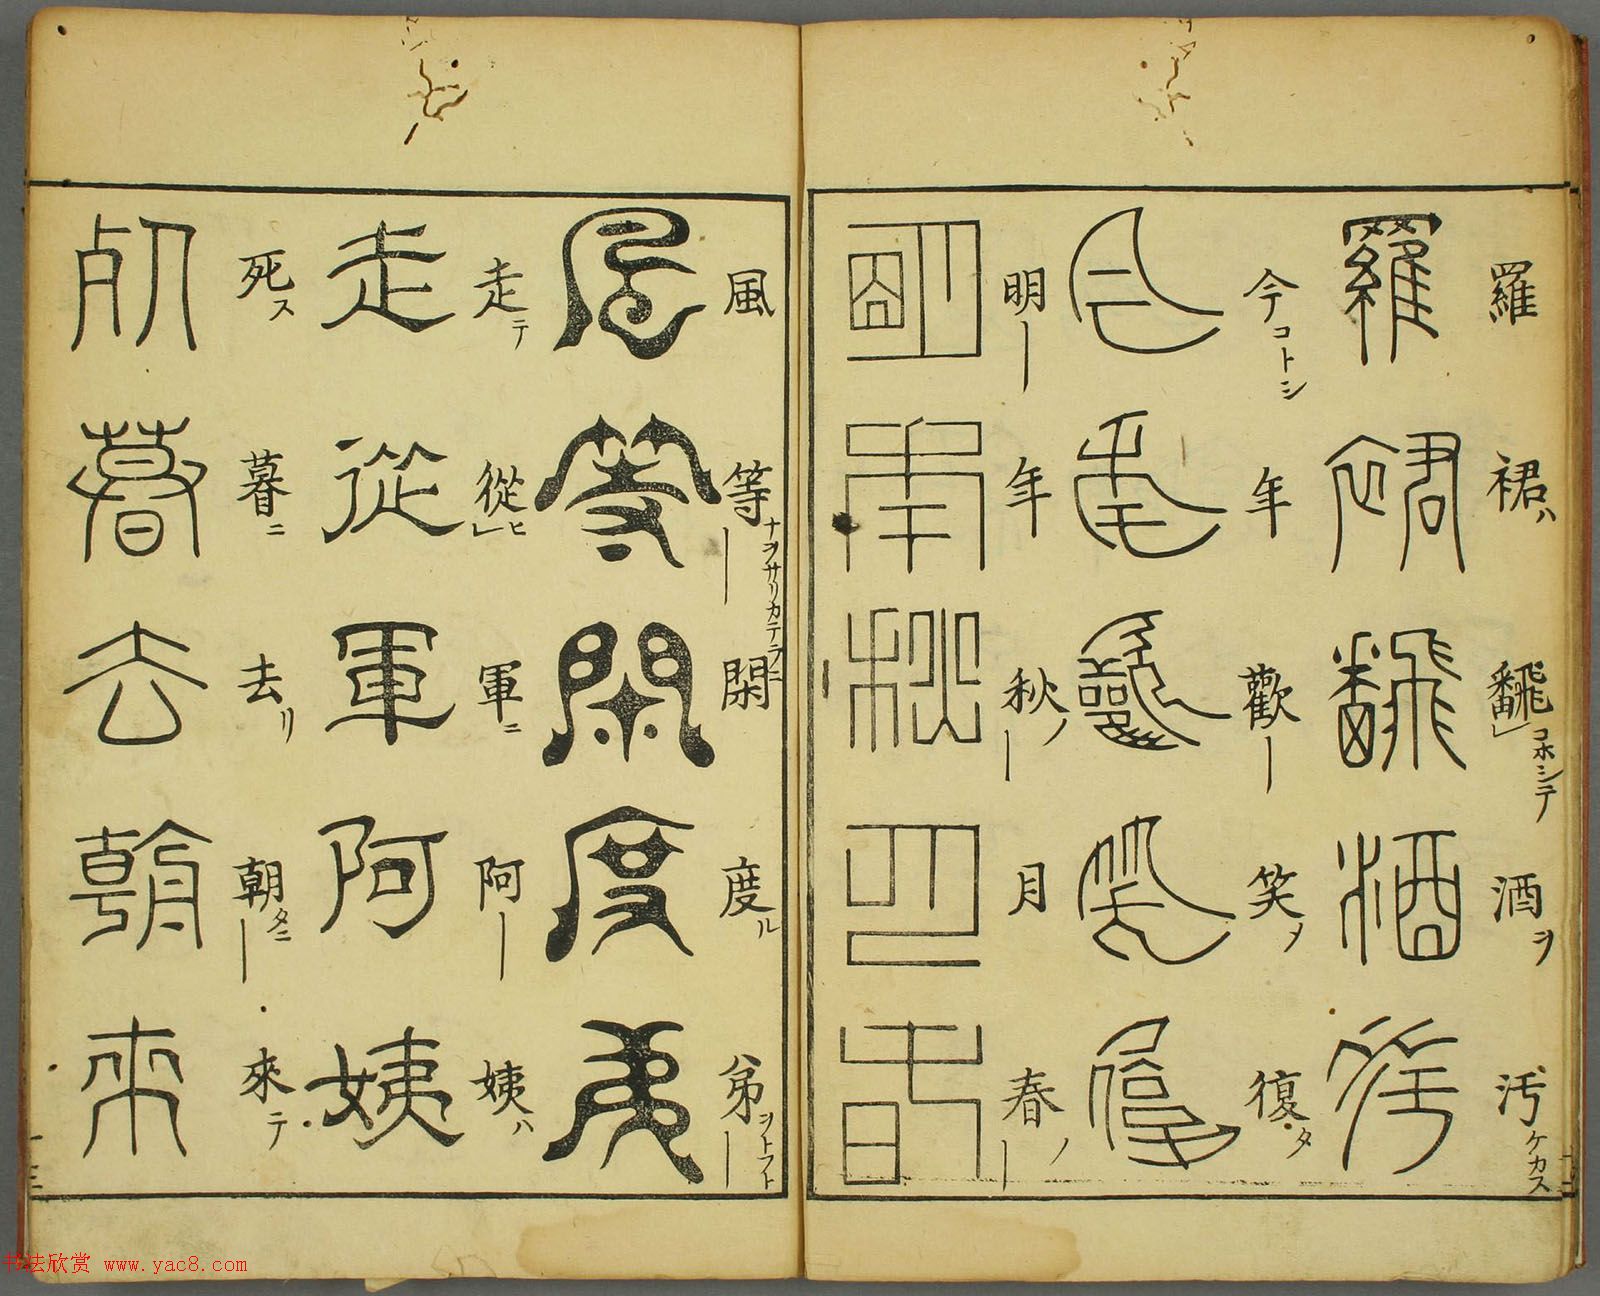 羅裙ハ飜コホシテ酒ヲ汚ケカス
羅裙飜酒汚
今コトシ年歡｜笑メ復タ
今年歡笑復
明｜年秋ノ｜月春ノ｜
明年秋月春
風等｜ナヲサリカテラニ閑度ル弟｜ヲトフトハ
風等閑度弟
走テ從ヒ軍ニ阿｜姨ハ
走從軍阿姨
死ス暮ニ去リ朝タニ｜來テ
死暮去朝來
书法欣赏 www.yac8.com